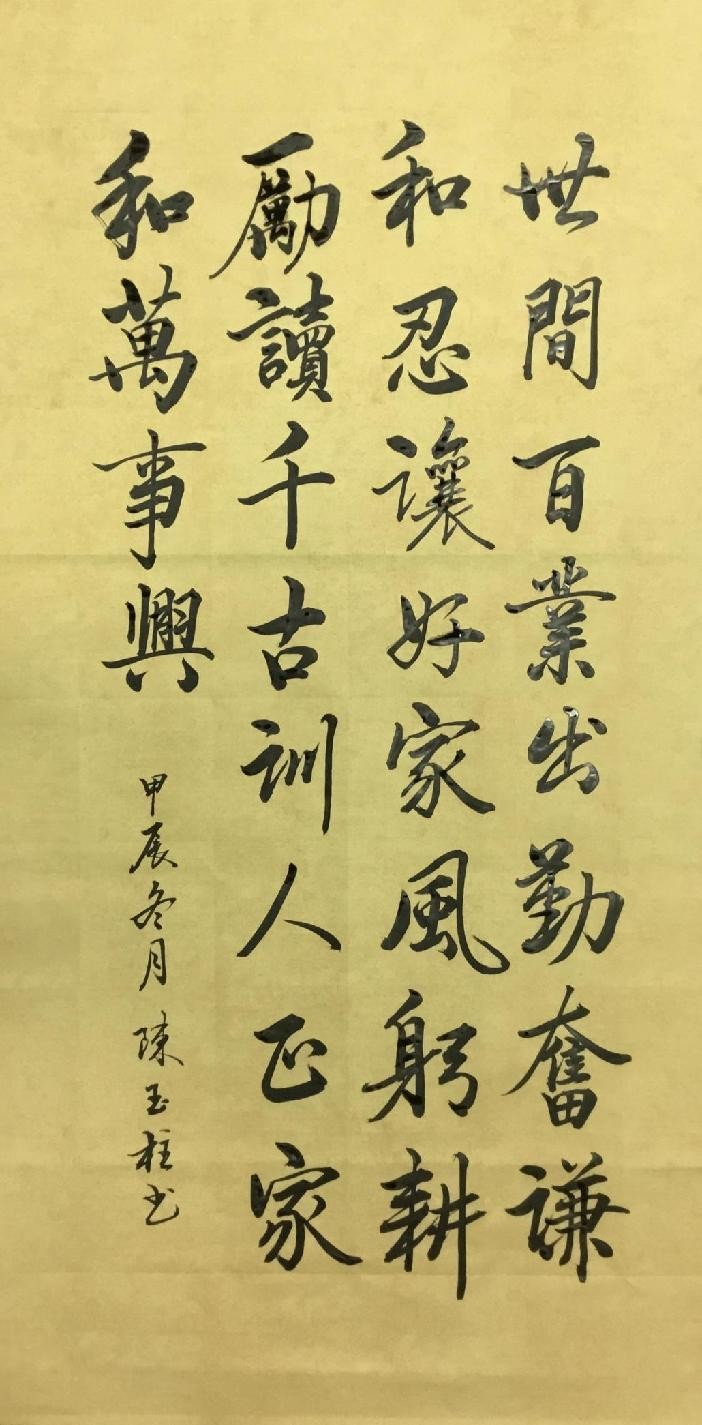 世間百業出勤奮謙
和忍讓好家風躬耕
勵讀千古訓人正家
和萬事興
甲辰冬月陳玉柱书